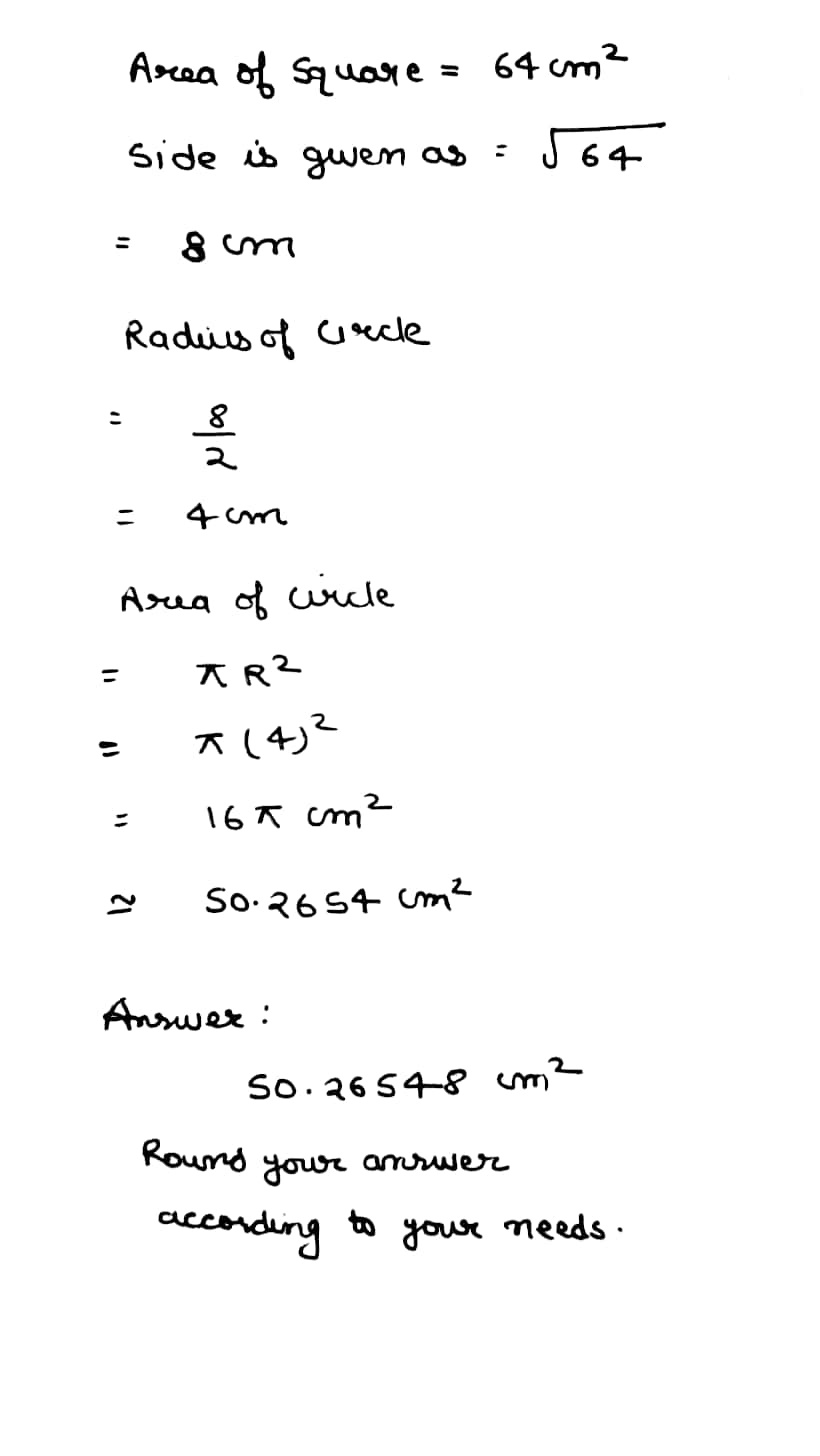 Area of Square = 64 cm²
Side is given as = √64
= 8 cm
Radius of Circle
= 8/2
= 4 cm
Area of circle
= π R²
= π (4)²
= 16 π cm²
≃ 50.2654 cm²
Answer :
50.26548 cm²
Round your answer
according to your needs.